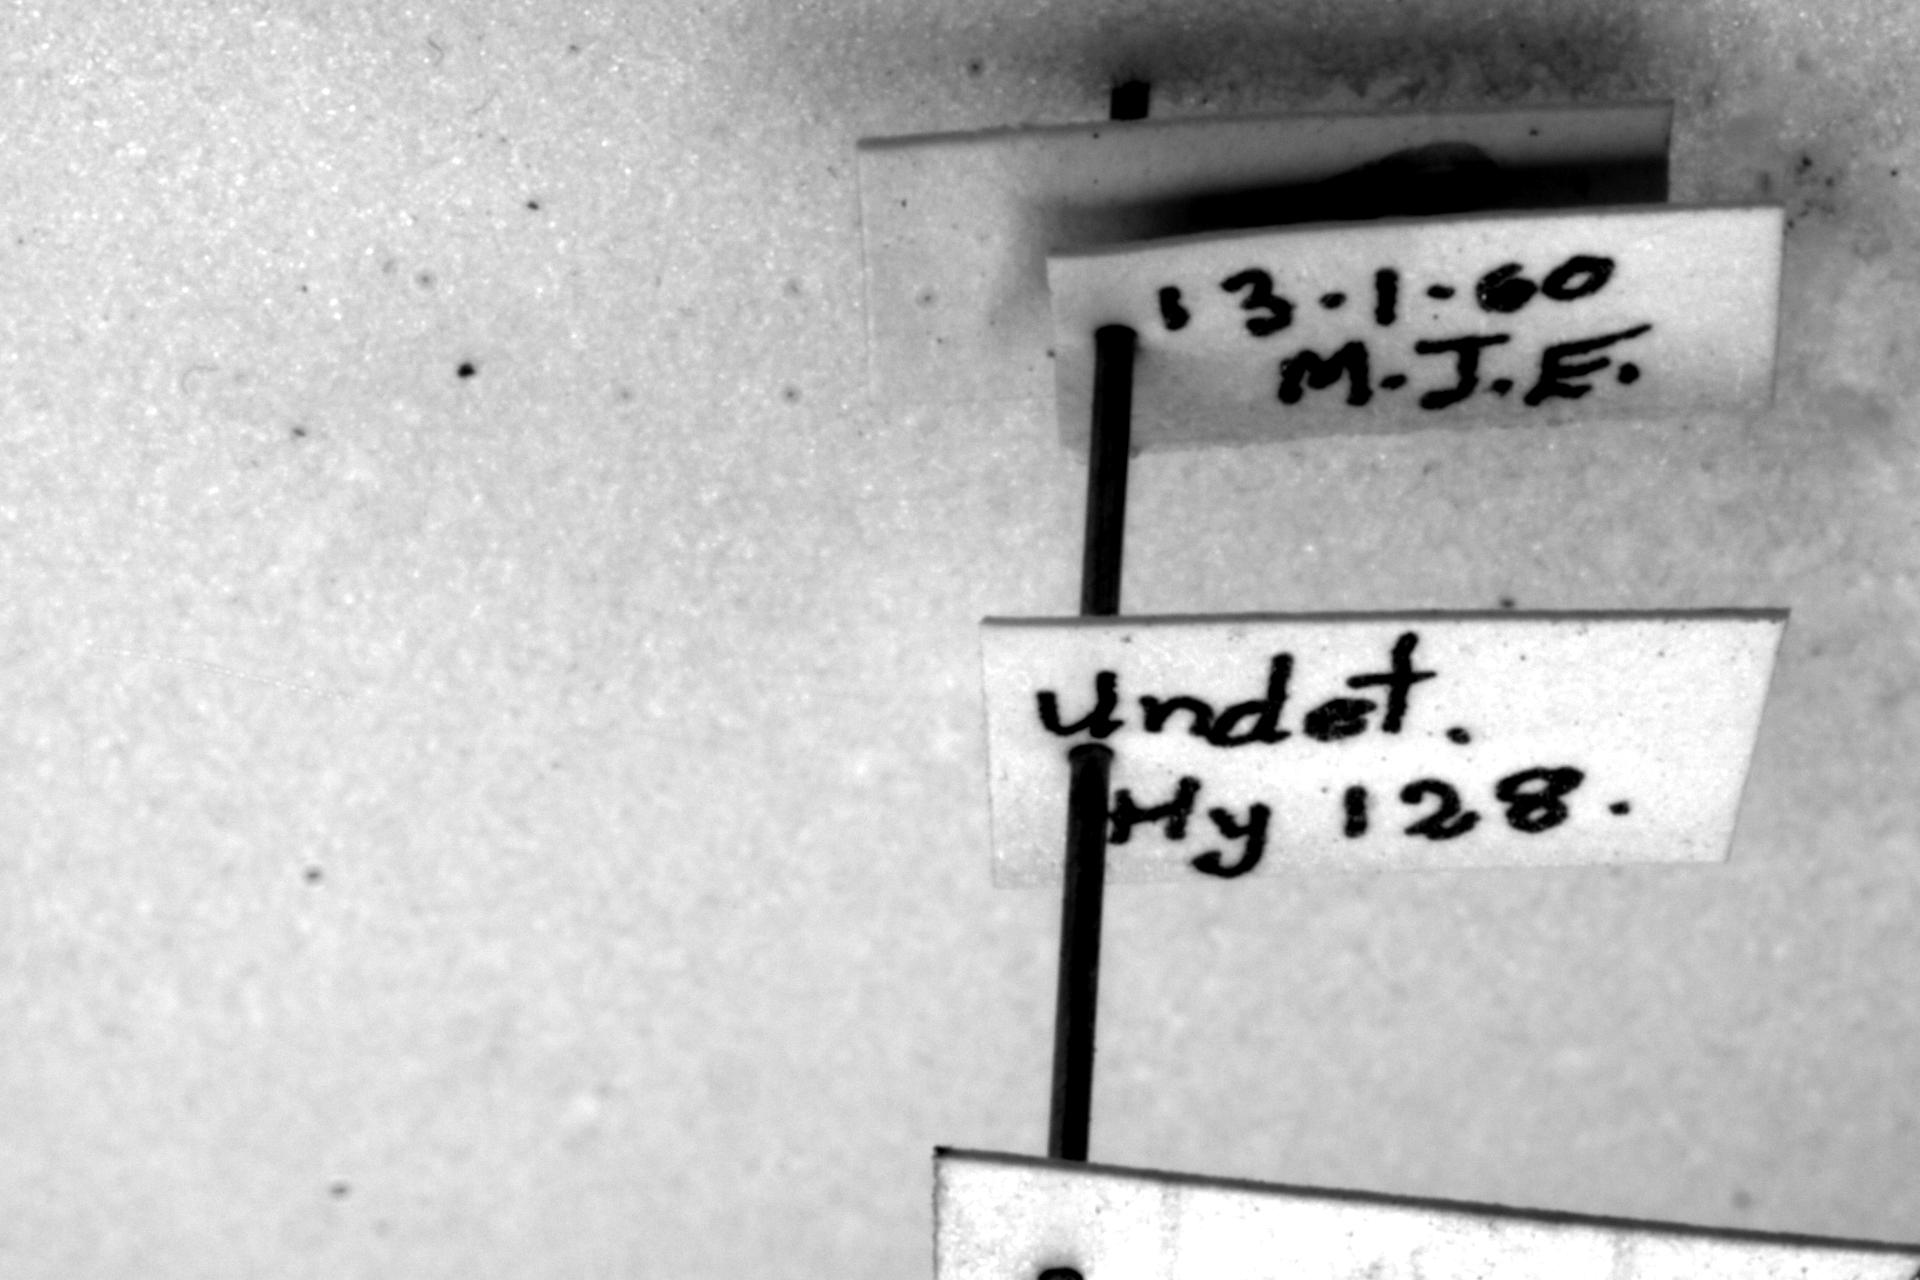 13-1-60
M.J.E.
Undet.
Hy 128.